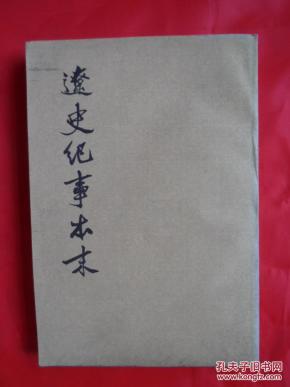 遼史紀事本末
孔夫子旧书网